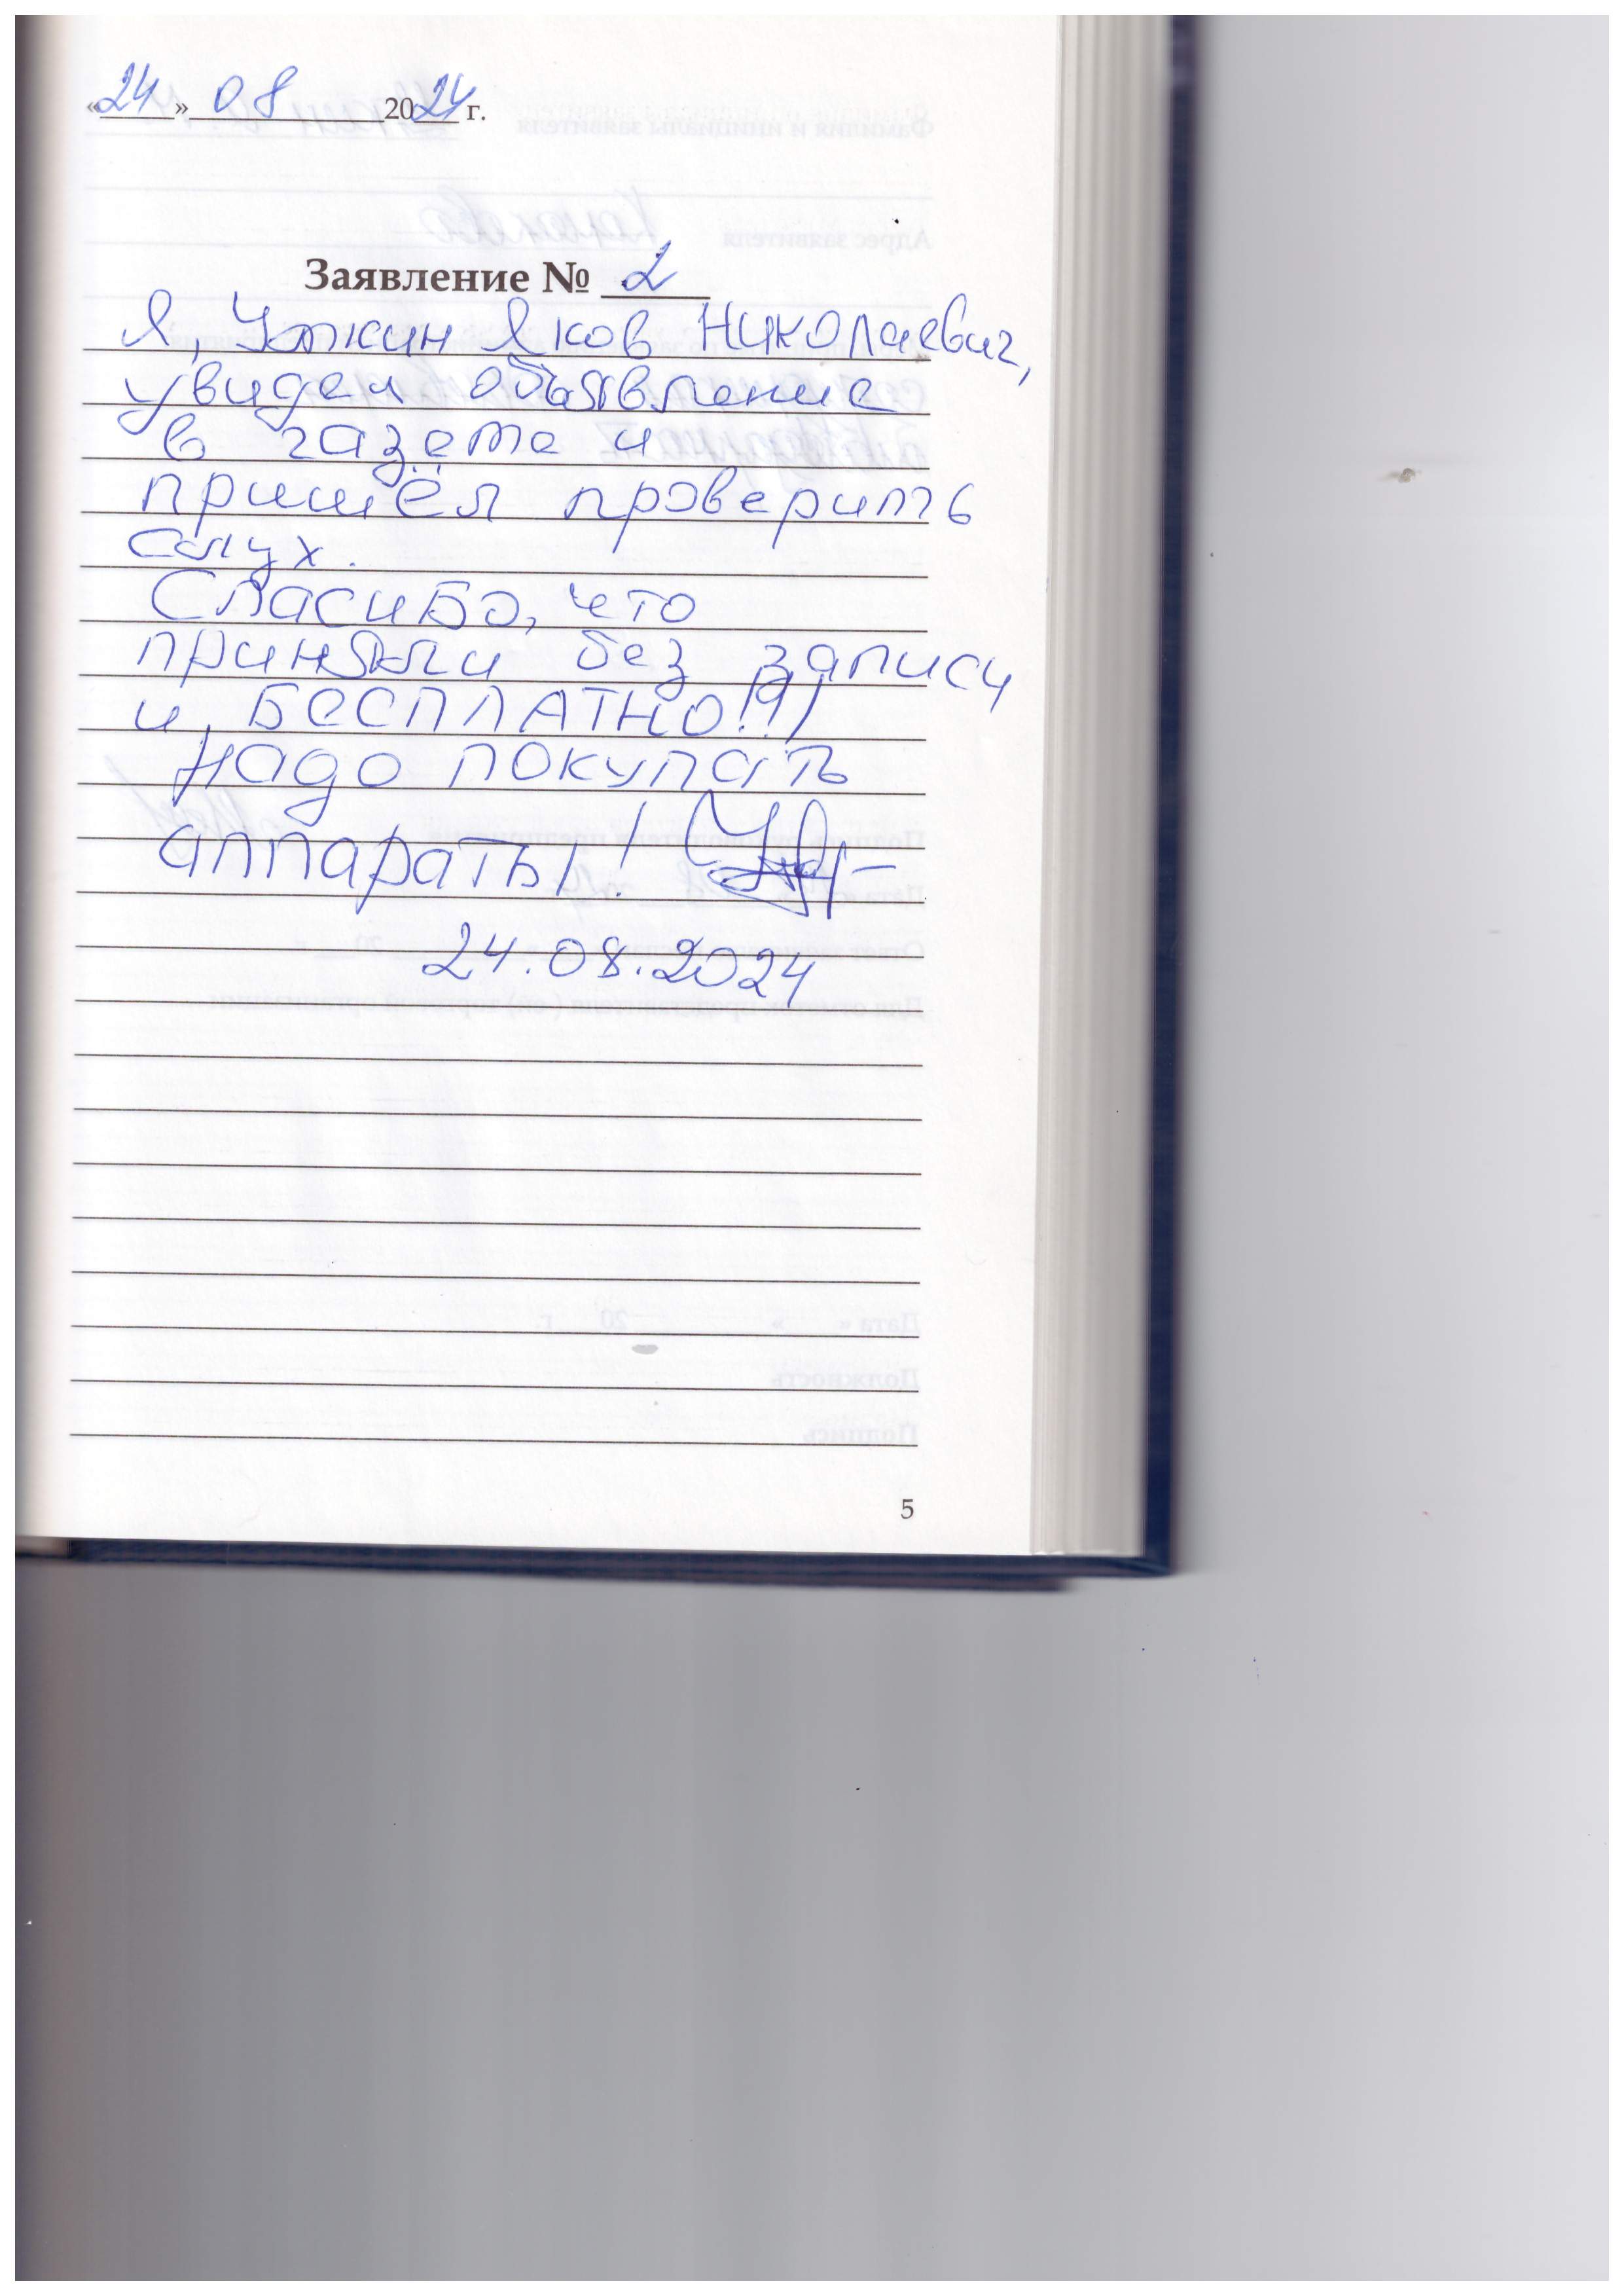 «24» 08 2024 г.
Заявление № 2
Я, Яков Николаевич,
увидел объявление
в газете и
пришёл проверить
слух.
Спасибо, что
приняли без записи
и БЕСПЛАТНО!!!
Надо покупать
аппараты!
24.08.2024
5